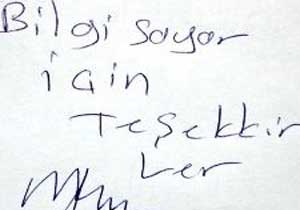 Bilgi sayar
için
Teşekkir
Ler